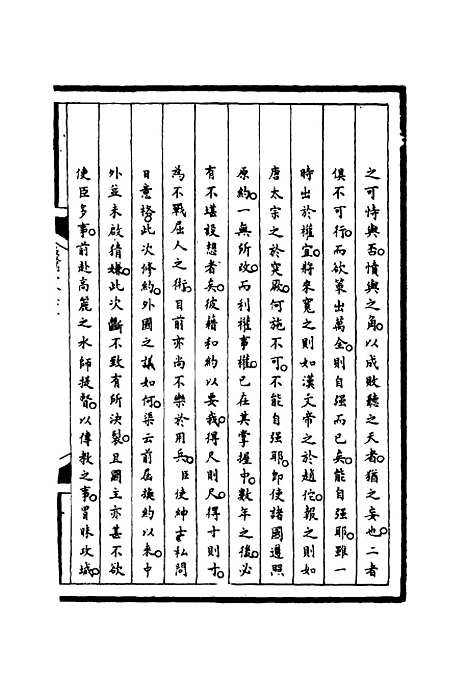 之可恃與否。憤與之角。以成敗聽之天者。猶之妄也。二者
俱不可行。而欲策出萬全。則自强而已矣。能自强耶。雖一
時出於權宜。將來寬之則如漢文帝之於趙佗。報之則如
唐太宗之於突厥。何施不可。不能自强耶。卽使諸國遵照
原約。一無所改。而利權事權。已在其掌握中。數年之後。必
有不堪設想者矣。彼藉和約以要我。得尺則尺。得寸則寸。
為不戰屈人之術。目前亦尚不樂於用兵。臣使紳士私問
日意格。此次修約。外國之議如何。渠云前屆換約以來。中
外並未啟猜嫌。此次斷不致有所決裂。且國主亦甚不欲
使臣多事。前赴高麗之水師提督。以傳教之事冒昧攻城。